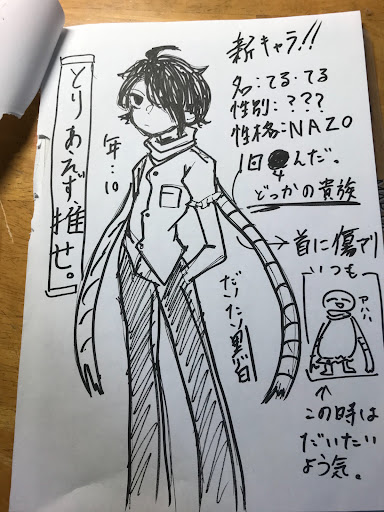 新キャラ!!
名:てる:てる
性別:???
性格:NAZO
1日4んだ。
どっかの貴族
とりあえず推せ。
年:10
首に傷アリ
いつも
アハハ
だいたい黒白
この時は
だいたい
よう気。